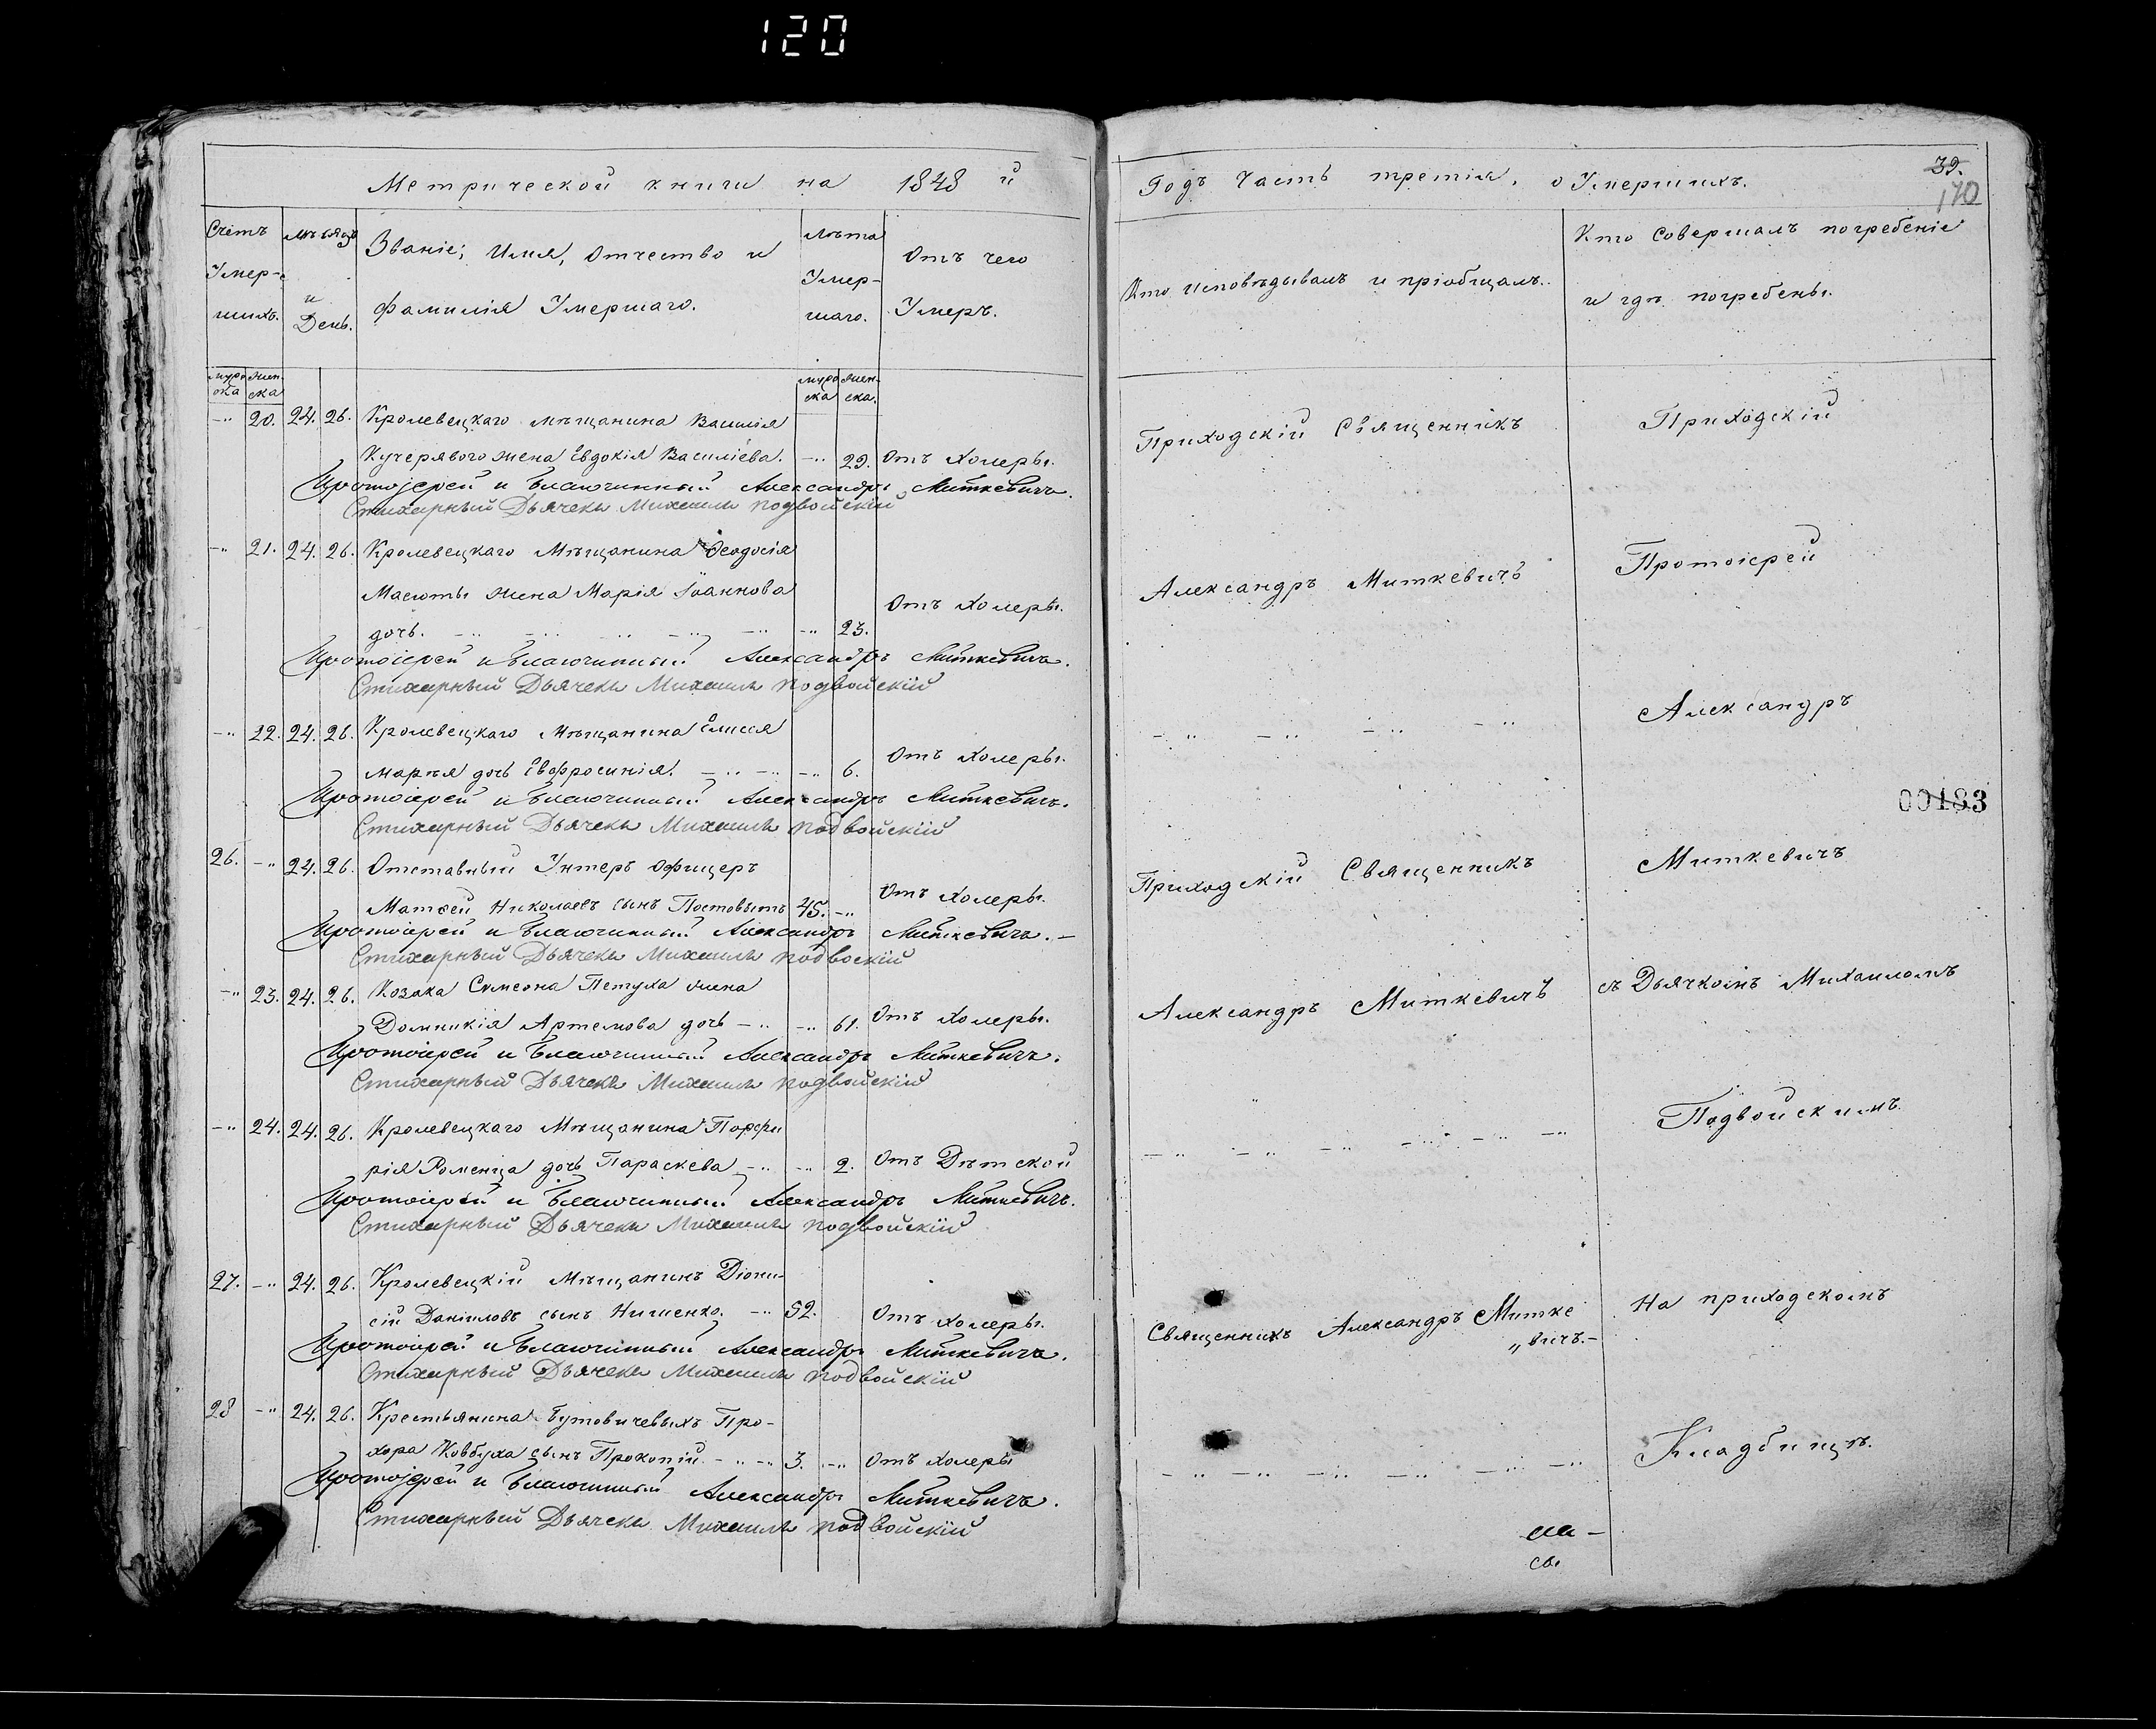 120
Метрической книги на 1848 й
Счетъ Умер-шихъ.
Мѣсяцъ и День.
Званіе, Имя, Отчество и фамилія Умершаго.
Лѣта Умер-шаго.
Отъ чего Умеръ.
муже ска женска
муже ска жен-ска.
-" 20. 24. 26. Кролевецкаго мѣщанина Василія
Кучерявого жена Евдокія Василіева. -" 29. Отъ Холеры.
Протоіерей и Благочинный Александръ Миткевичъ.
Стихарный Дьячекъ Михаилъ Подвойскій
-" 21. 24. 26. Кролевецкаго Мѣщанина Ѳеодосія
Масюты жена Марія Іоаннова
дочь. -" 23. Отъ Холеры.
Протоіерей и Благочинный Александръ Миткевичъ.
Стихарный Дьячекъ Михаилъ Подвойскій
-" 22. 24. 26. Кролевецкаго Мѣщанина Елисея
дочь Евфросинія. -" 6. Отъ Холеры.
Протоіерей и Благочинный Александръ Миткевичъ.
Стихарный Дьячекъ Михаилъ Подвойскій
26. -" 24. 26. Отставный Унтеръ Офицеръ
Матѳей Николаевъ сынъ 45. -" Отъ Холеры.
Протоіерей и Благочинный Александръ Миткевичъ. -
Стихарный Дьячекъ Михаилъ Подвоскій
-" 23. 24. 26. Козака Симеона Петуха жена
Домникія Артемова дочь -" -" 61. Отъ Холеры.
Протоіерей и Благочинный Александръ Миткевичъ.
Стихарный Дьячекъ Михаилъ Подвойскій
-" 24. 24. 26. Кролевецкаго Мѣщанина Порфи
рія Роменца дочь Параскева -" -" 2. Отъ Дѣтской
Протоіерей и Благочинный Александръ Миткевичъ.
Стихарный Дьячекъ Михаилъ Подвойскій
27. -" 24. 26. Кролевецкій Мѣщанинъ Діони-
сій Даніиловъ сынъ Нищенко. -" 52. Отъ Холеры.
Протоіерей и Благочинный Александръ Миткевичъ.
Стихарный Дьячекъ Михаилъ Подвойскій
28 -" 24. 26. Крестьянина Бутовичевыхъ Про-
хора Ковбуха сынъ Прокопій -" -" 3. -" Отъ Холеры
Протоіерей и Благочинный Александръ Миткевичъ.
Стихарный Дьячекъ Михаилъ Подвойскій
Годъ Часть третія, о Умершихъ.
39.
170
Кто исповѣдывалъ и пріобщалъ.
Кто совершалъ погребеніе
и гдѣ погребены.
Приходскій Священникъ
Александръ Миткевичъ
Приходскій Священникъ
Александръ Миткевичъ
Священникъ Александръ Митке
"вичъ.-
Приходскій
Протоіерей
Александръ
00183
Миткевичъ
съ Дьячкомъ Михаиломъ
Подвойскимъ
На приходскомъ
Кладбищѣ.